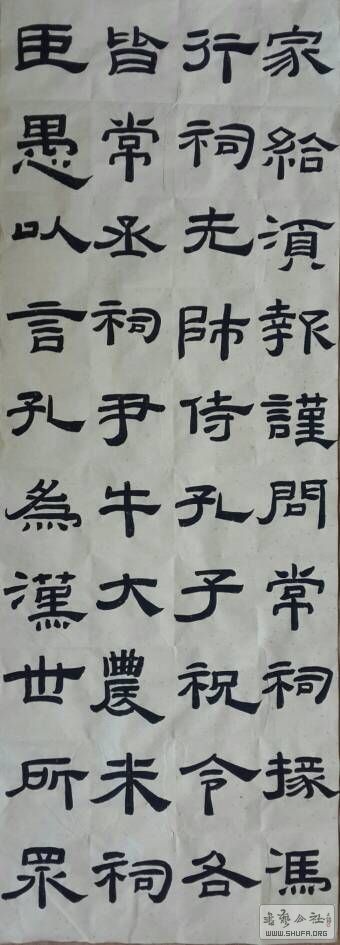 家給湏報謹問常祠掾馮
行祠先師侍孔子祝令各
皆常丞祠尹牛大農未祠
臣愚以言孔為漢世所眾
WWW.SHUFA.ORG